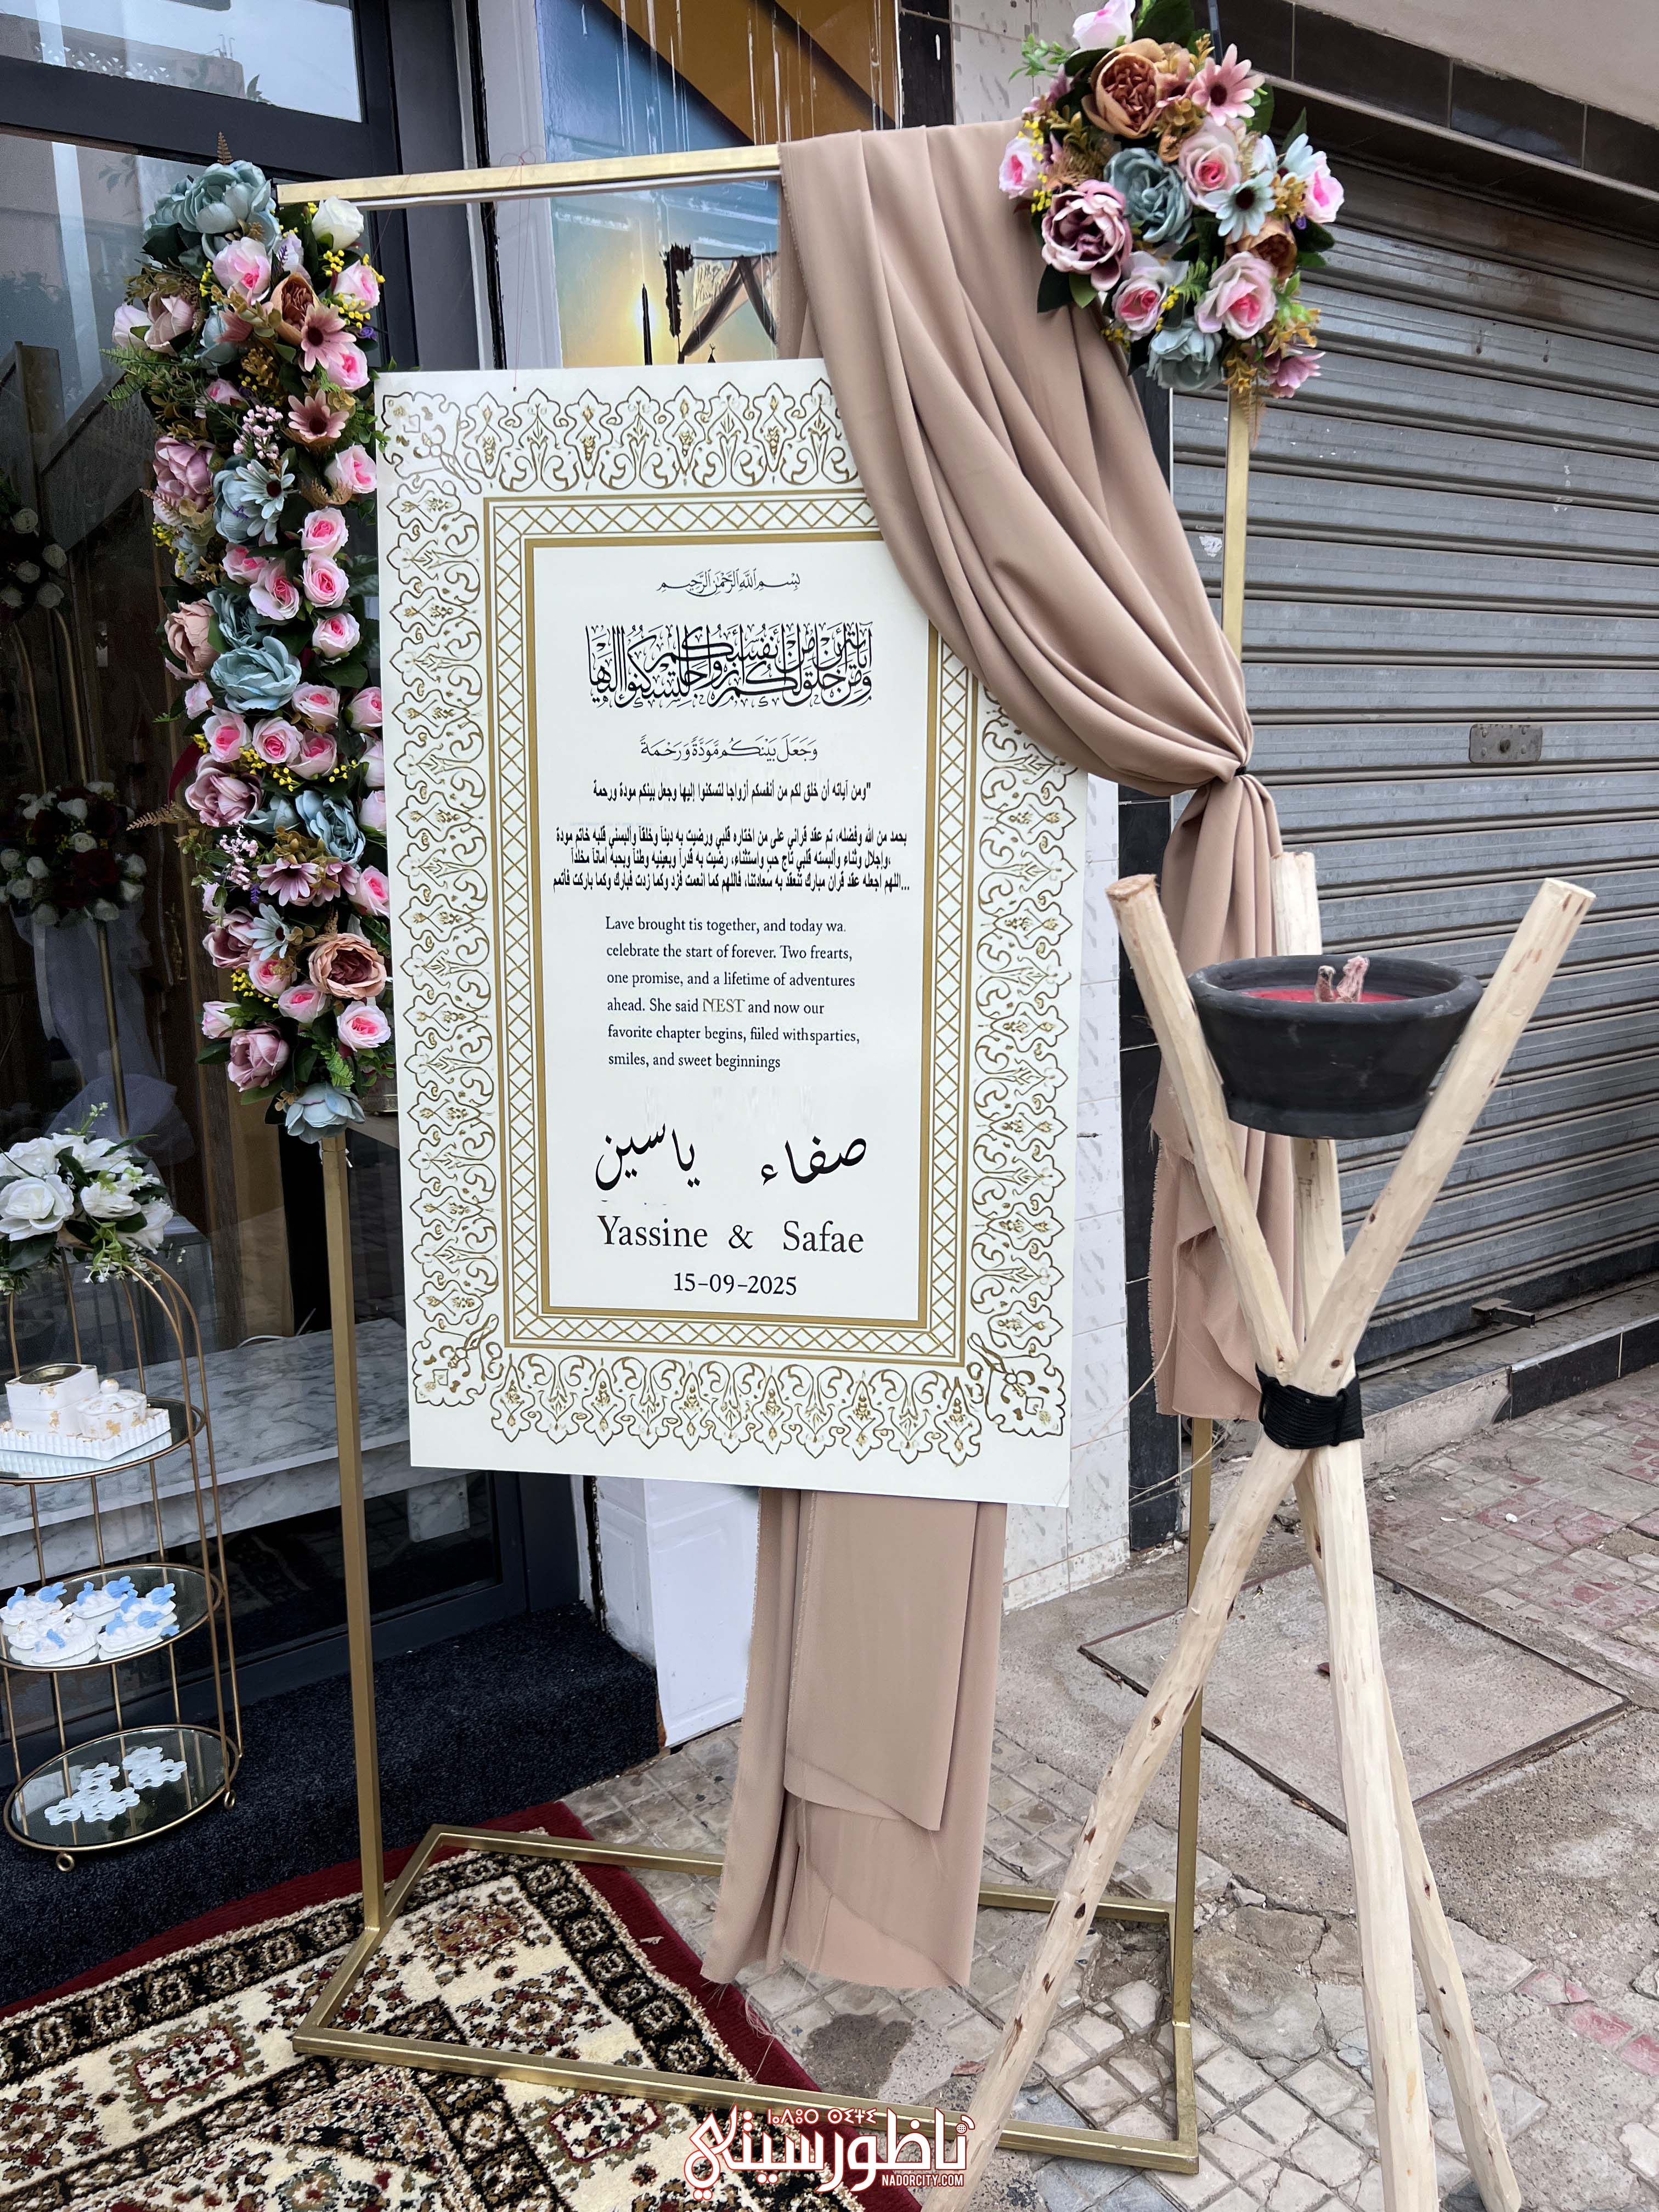 بِسْمِ اللَّهِ الرَّحْمَٰنِ الرَّحِيمِ
وَمِنْ آيَاتِهِ أَنْ خَلَقَ لَكُم مِّنْ أَنفُسِكُمْ أَزْوَاجًا لِّتَسْكُنُوا إِلَيْهَا
وَجَعَلَ بَيْنَكُم مَّوَدَّةً وَرَحْمَةً
"ومن آياته أن خلق لكم من أنفسكم أزواجا لتسكنوا إليها وجعل بينكم مودة ورحمة
بحمد من الله وفضله، تم عقد قراني على من اختاره قلبي ورضيت به ديناً وخلقاً وألبسني قلبه خاتم مودة
،وإجلال وثناء وألبسته قلبي تاج حب واستثناء، رضيت به قدراً وبعينيه وطناً وبحبه أماناً مخلداً
...اللهم اجعله عقد قران مبارك تنعقد به سعادتنا، فاللهم كما أنعمت فزد وكما زدت فبارك وكما باركت فأتمم
Lave brought tis together, and today wa.
celebrate the start of forever. Two frearts,
one promise, and a lifetime of adventures
ahead. She said NEST and now our
favorite chapter begins, fiiled withsparties,
smiles, and sweet beginnings
صفاء ياسين
Yassine & Safae
15-09-2025
ⵏⴰⴷⵓⵔ ⵙⵉⵜⵉ
ناظورسيتي
NADORCITY.COM